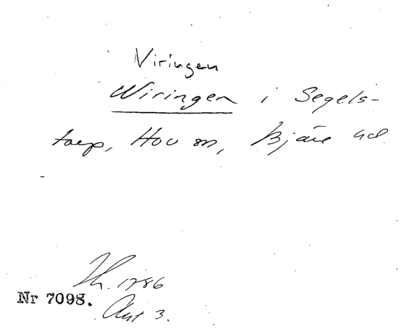 Viringen
Wiringen i Segels-
torp, Hov sn, Bjäre hd.
Nr 7098.
Akt 3.